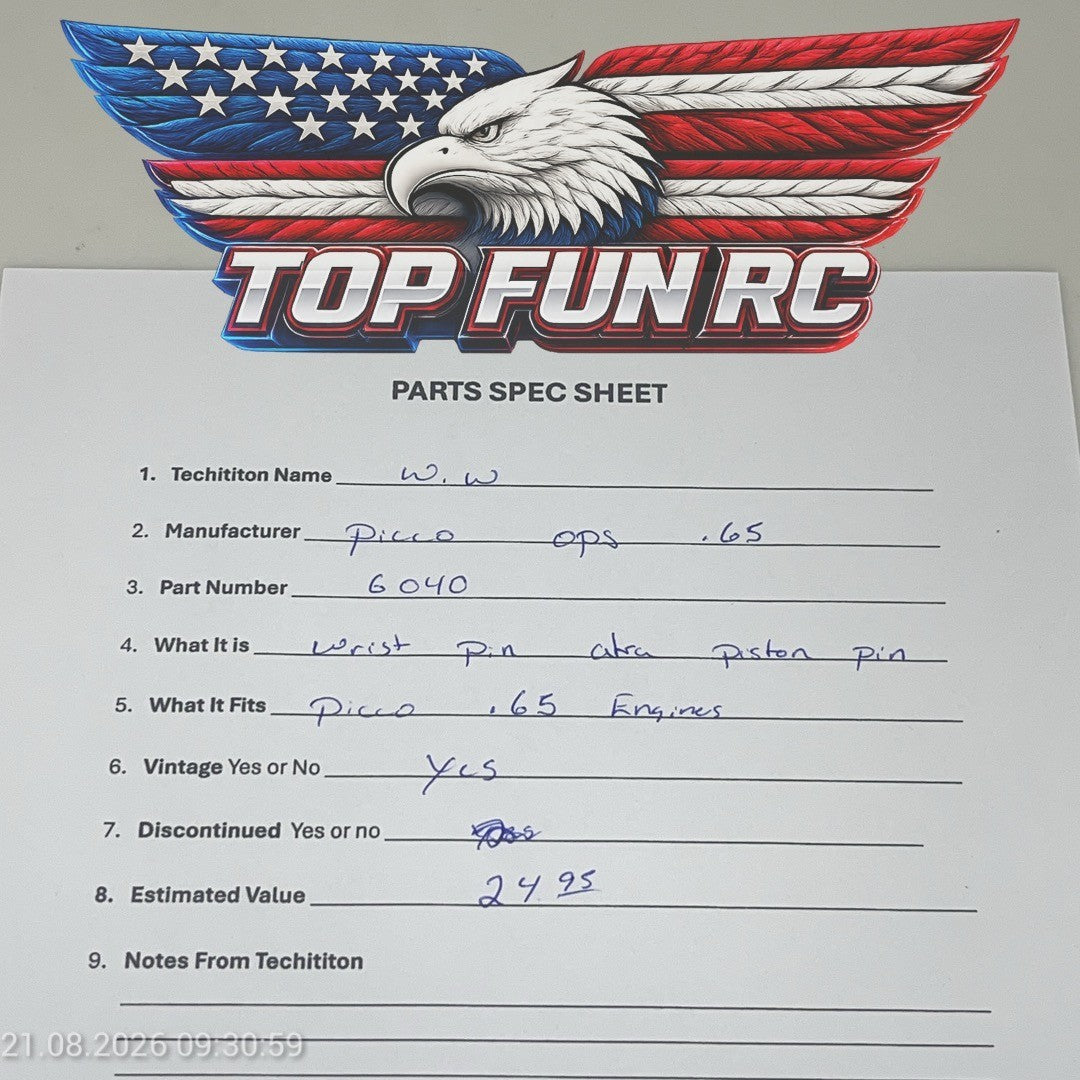 TOP FUN RC
PARTS SPEC SHEET
1. Techititon Name W. W
2. Manufacturer Picco ops .65
3. Part Number 6040
4. What It is wrist pin aka piston pin
5. What It Fits Picco .65 Engines
6. Vintage Yes or No Yes
7. Discontinued Yes or no
8. Estimated Value 24.95
9. Notes From Techititon
21.08.2026 09:30:59